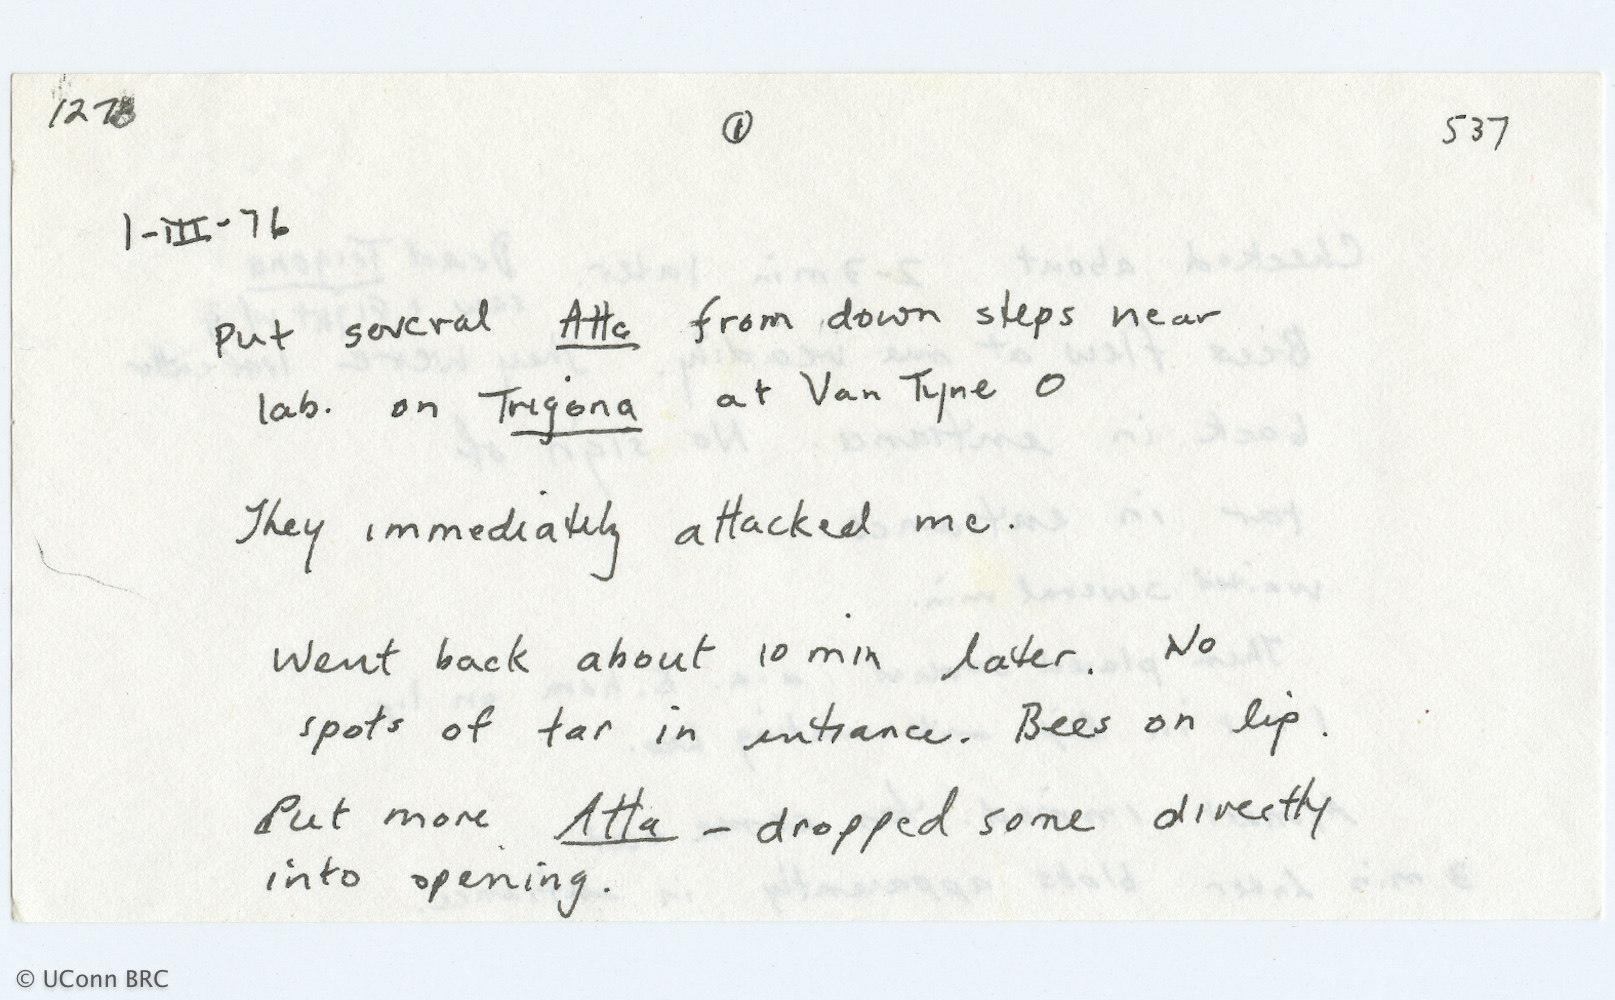 1278
①
537
1-III-76
Put several Atta from down steps near
lab. on Trigona at Van Tyne O
They immediately attacked me.
Went back about 10 min later. No
spots of tar in entrance. Bees on lip.
Put more Atta – dropped some directly
into opening.
© UConn BRC